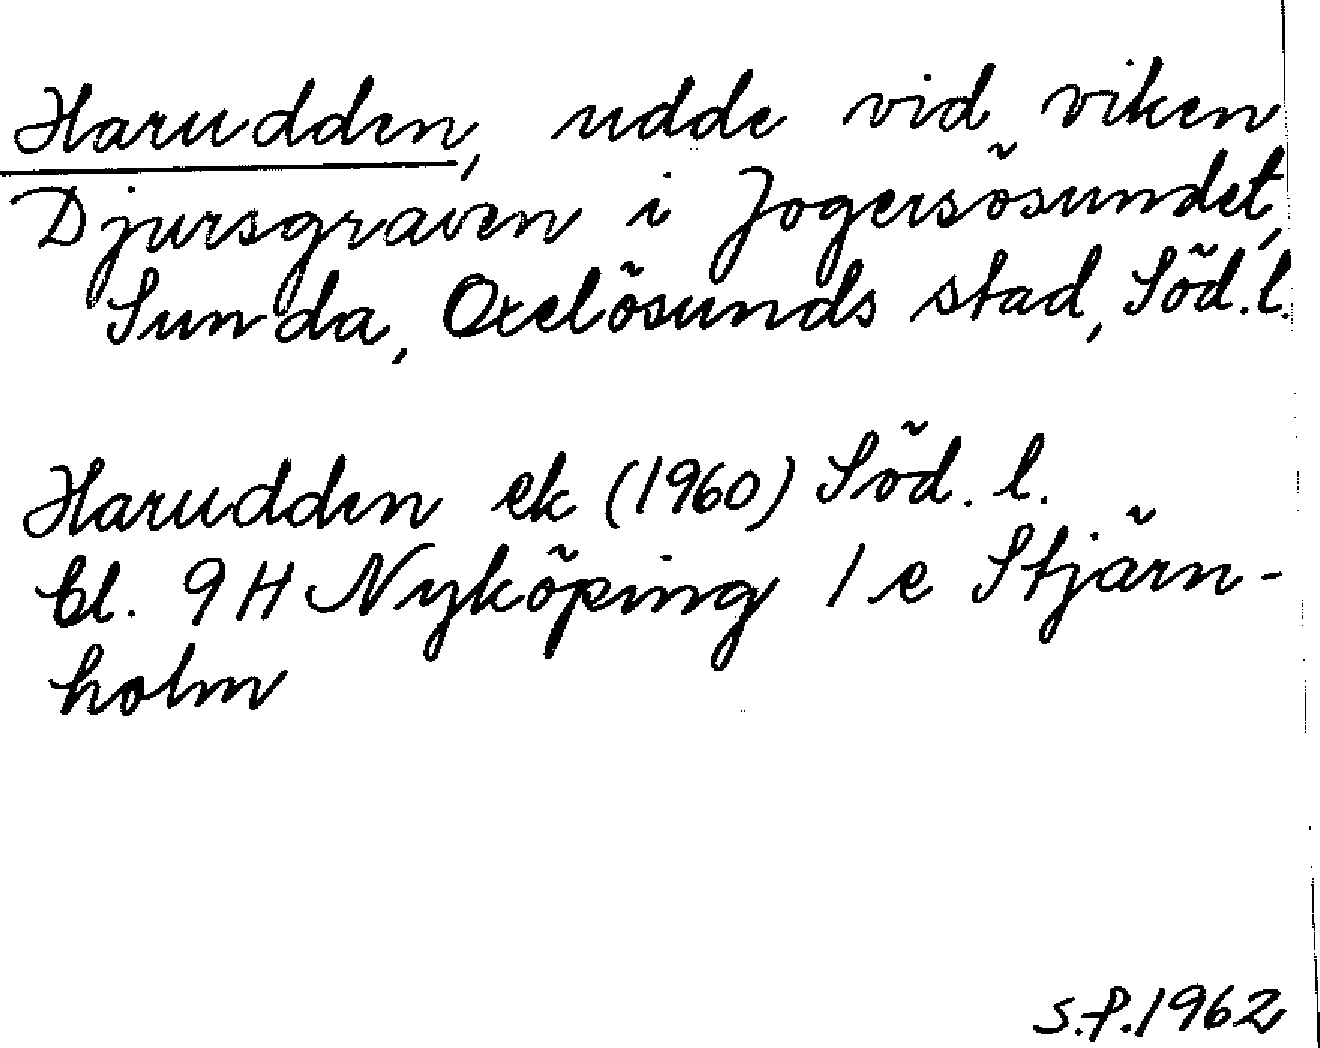 Harudden, udde vid viken
Djursgraven i Jogersösundet,
Sunda, Oxelösunds stad, Söd. l.
Harudden ek (1960) Söd. l.
bl. 9 H Nyköping 1 e Stjärn-
holm
S.P. 1962